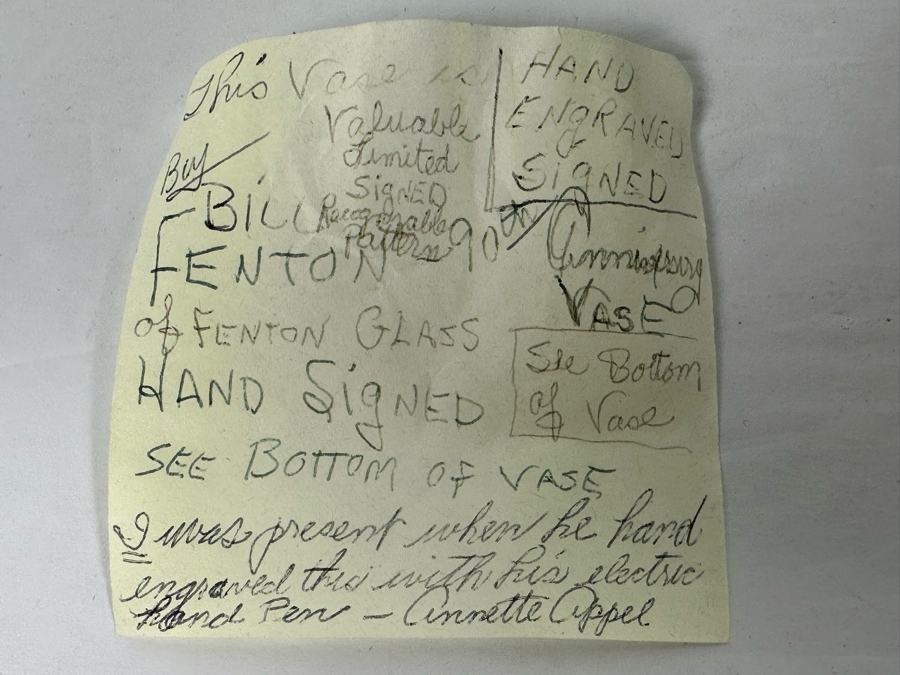 This Vase is
Valuable
Limited
SIGNED
Recognizable
Pattern
HAND
ENgRAVED
SiGNED
By
BiLL
FENTON
90th Anniversary
VASE
of FENTON GLASS
HAND SigNED
See Bottom
of Vase
SEE BOTTOM OF VASE
I was present when he hand
engraved this with his electric
hand Pen – Annette Appel